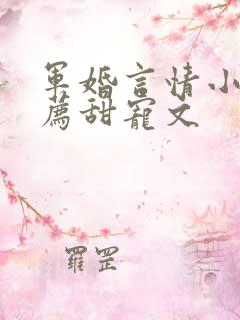 軍婚言情小
薦甜寵文
羅罡